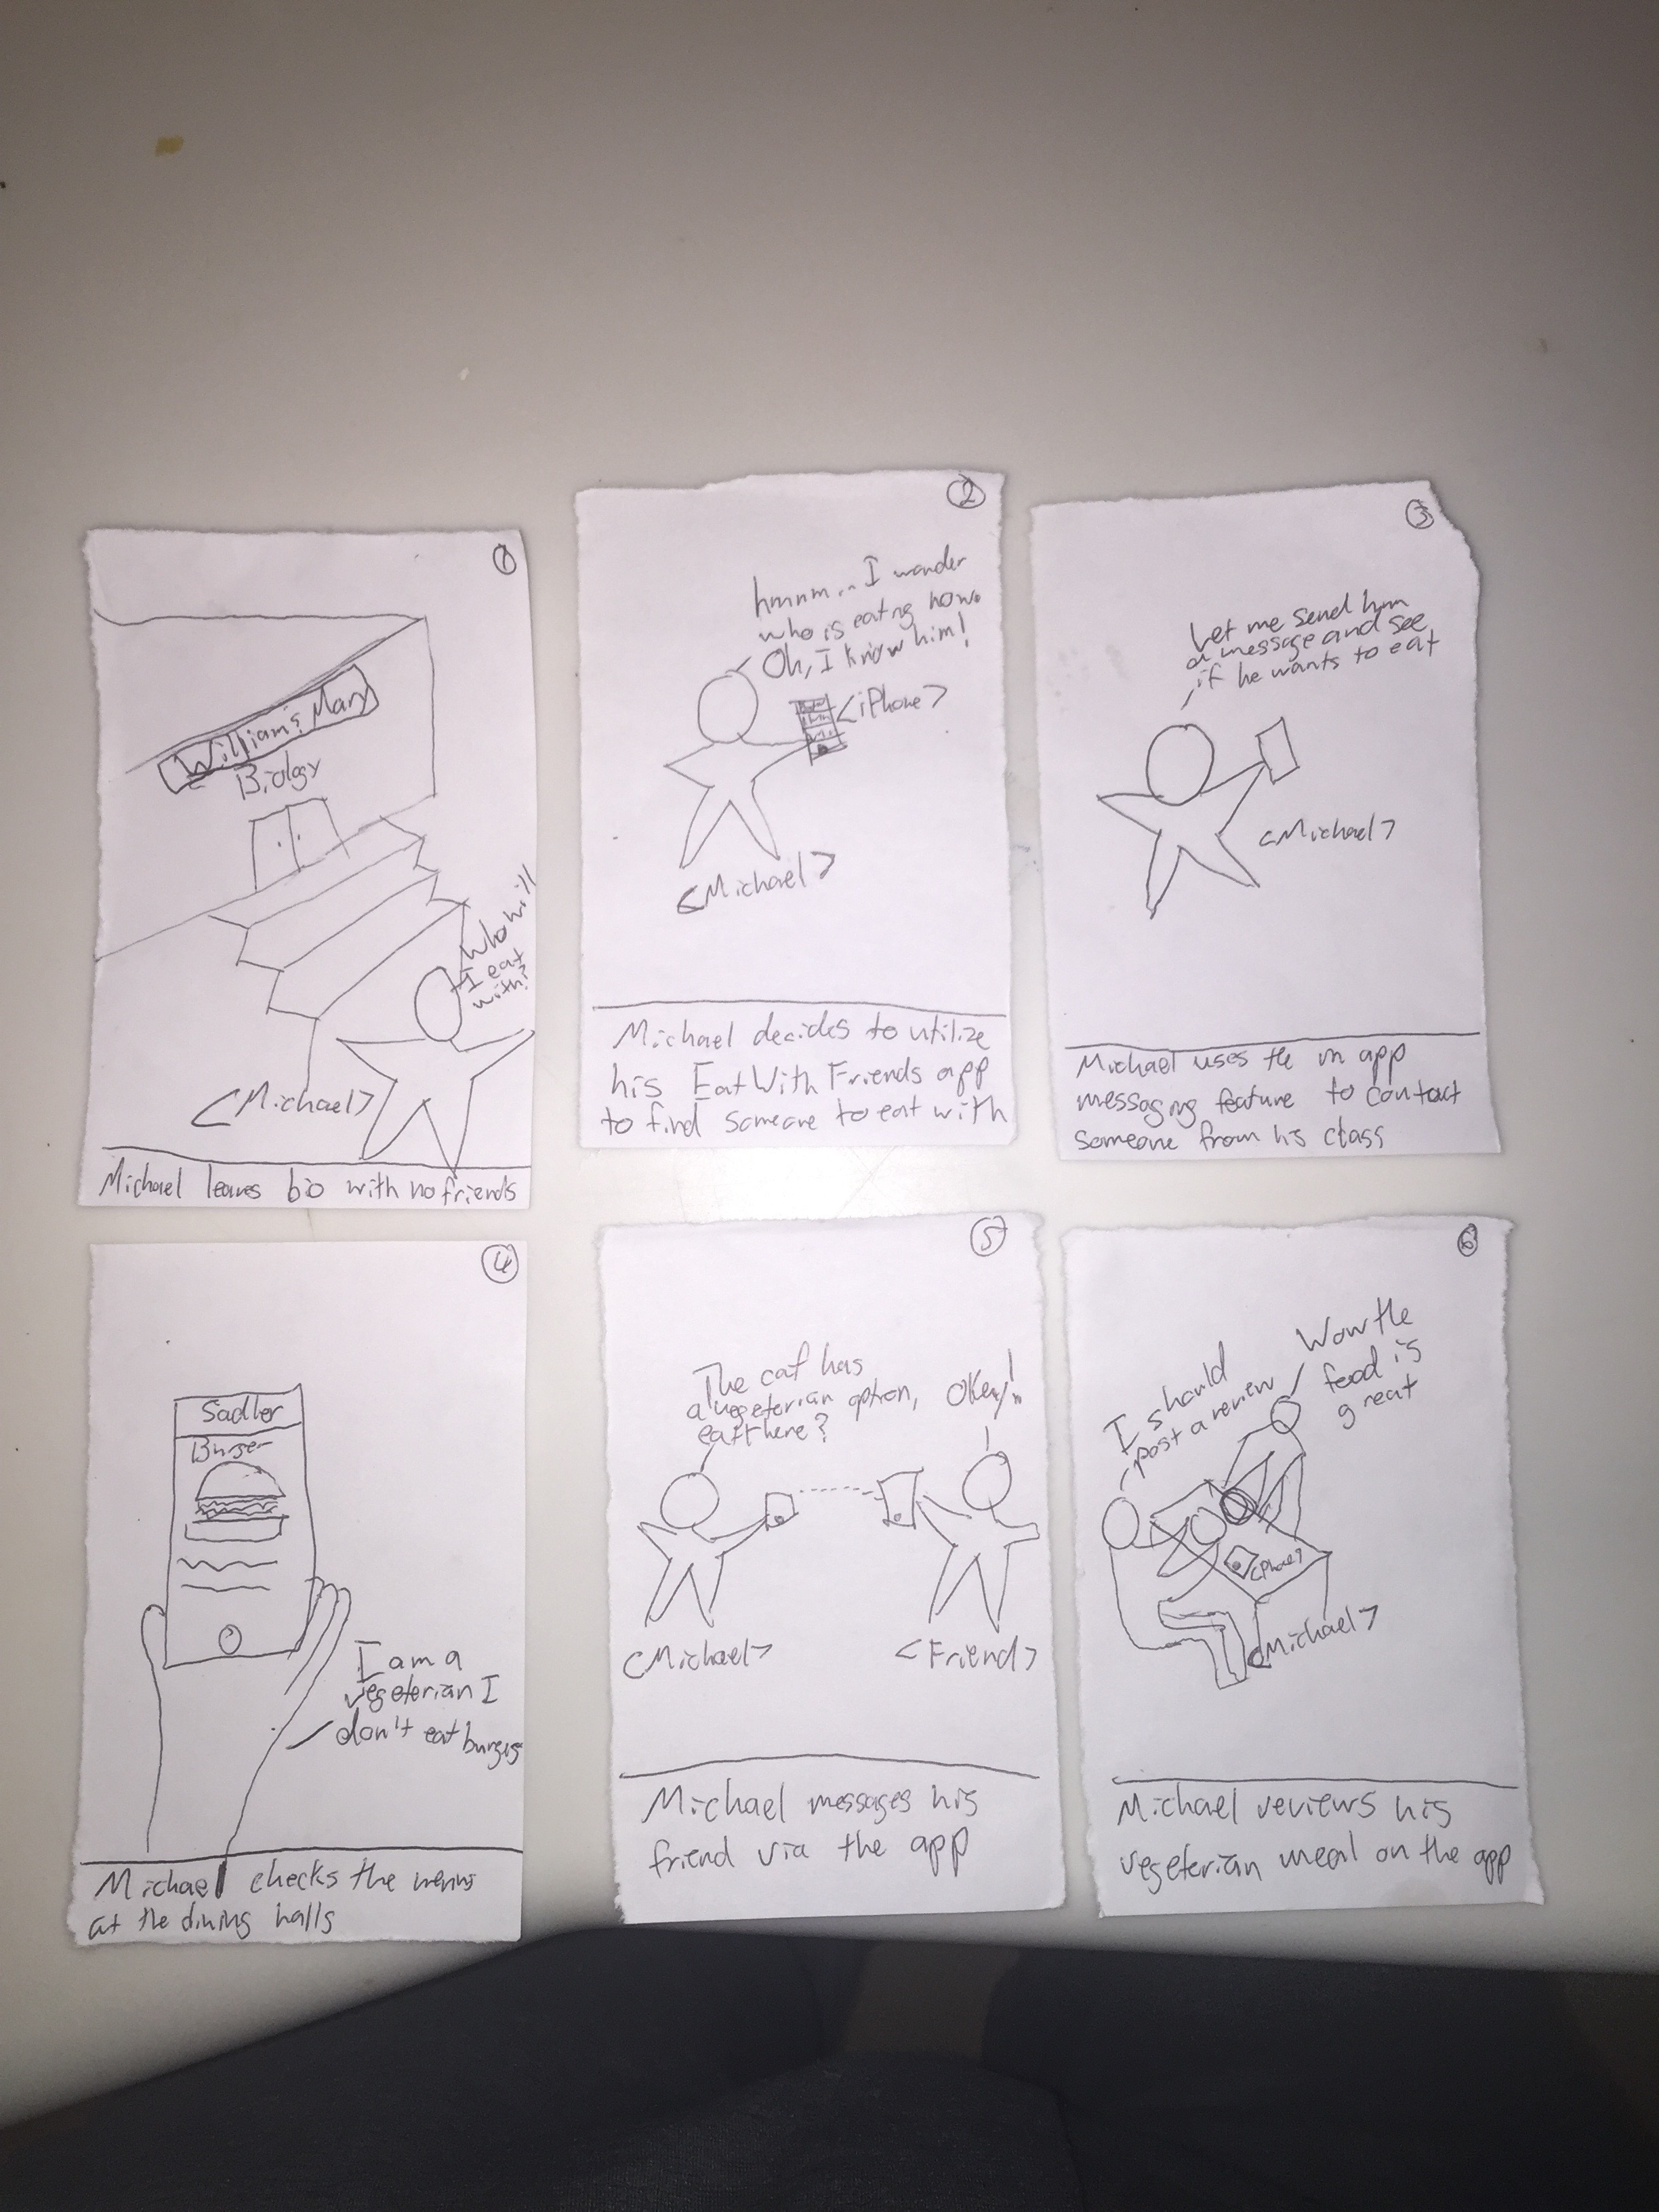 ①
William & Mary
Biology
Who will
I eat
with?
<Michael>
Michael leaves bio with no friends
②
hmmm... I wonder
who is eating now.
Oh, I know him!
<iPhone>
<Michael>
Michael decides to utilize
his EatWith Friends app
to find someone to eat with
③
Let me send him
a message and see
if he wants to eat
<Michael>
Michael uses the in app
messaging feature to contact
someone from his class
④
Sadler
Burger
I am a
vegeterian I
don't eat burgers
Michael checks the menus
at the dining halls
⑤
The caf has
a vegeterian option,
eat there?
Okay!
<Michael>
<Friend>
Michael messages his
friend via the app
⑥
I should
post a review
Wow the
food is
great
<Phone>
<Michael>
Michael reviews his
vegeterian meal on the app